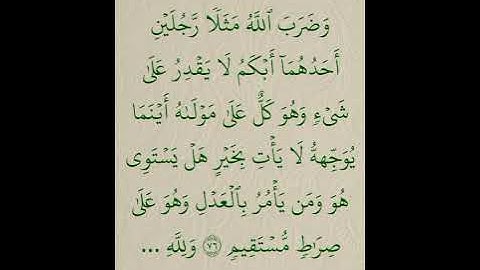 وَضَرَبَ ٱللَّهُ مَثَلٗا رَّجُلَيۡنِ
أَحَدُهُمَآ أَبۡكَمُ لَا يَقۡدِرُ عَلَىٰ
شَيۡءٖ وَهُوَ كَلٌّ عَلَىٰ مَوۡلَىٰهُ أَيۡنَمَا
يُوَجِّههُّ لَا يَأۡتِ بِخَيۡرٍ هَلۡ يَسۡتَوِي
هُوَ وَمَن يَأۡمُرُ بِٱلۡعَدۡلِ وَهُوَ عَلَىٰ
صِرَٰطٖ مُّسۡتَقِيمٖ ٧٦ وَلِلَّهِ ...